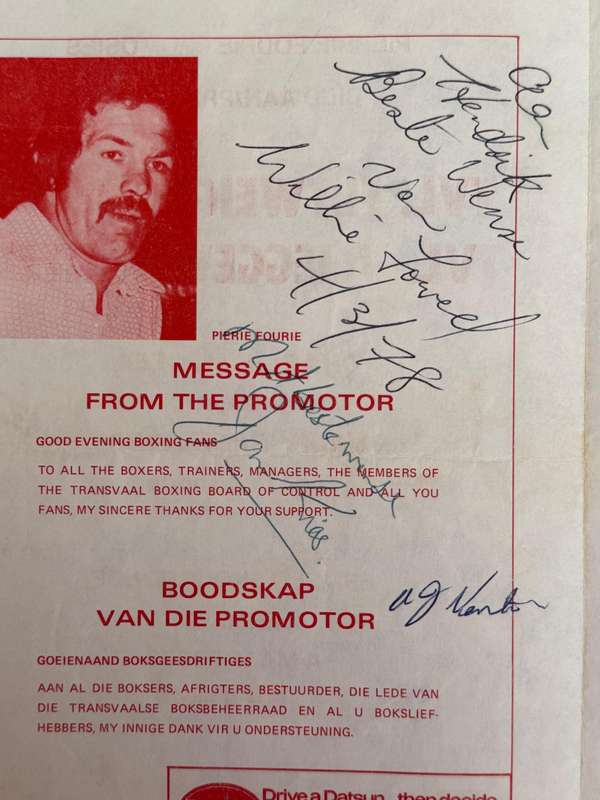 aan
Hendrik
Beste Wense
Van
Willie Toweel
4/3/78
PIERIE FOURIE
MESSAGE
FROM THE PROMOTOR
Met beste wense
Jan
GOOD EVENING BOXING FANS
TO ALL THE BOXERS, TRAINERS, MANAGERS, THE MEMBERS OF
THE TRANSVAAL BOXING BOARD OF CONTROL AND ALL YOU
FANS, MY SINCERE THANKS FOR YOUR SUPPORT.
BOODSKAP
VAN DIE PROMOTOR
GOEIENAAND BOKSGEESDRIFTIGES
AAN AL DIE BOKSERS, AFRIGTERS, BESTUURDER, DIE LEDE VAN
DIE TRANSVAALSE BOKSBEHEERRAAD EN AL U BOKSLIEF-
HEBBERS, MY INNIGE DANK VIR U ONDERSTEUNING.
Drive a Datsun...then decide